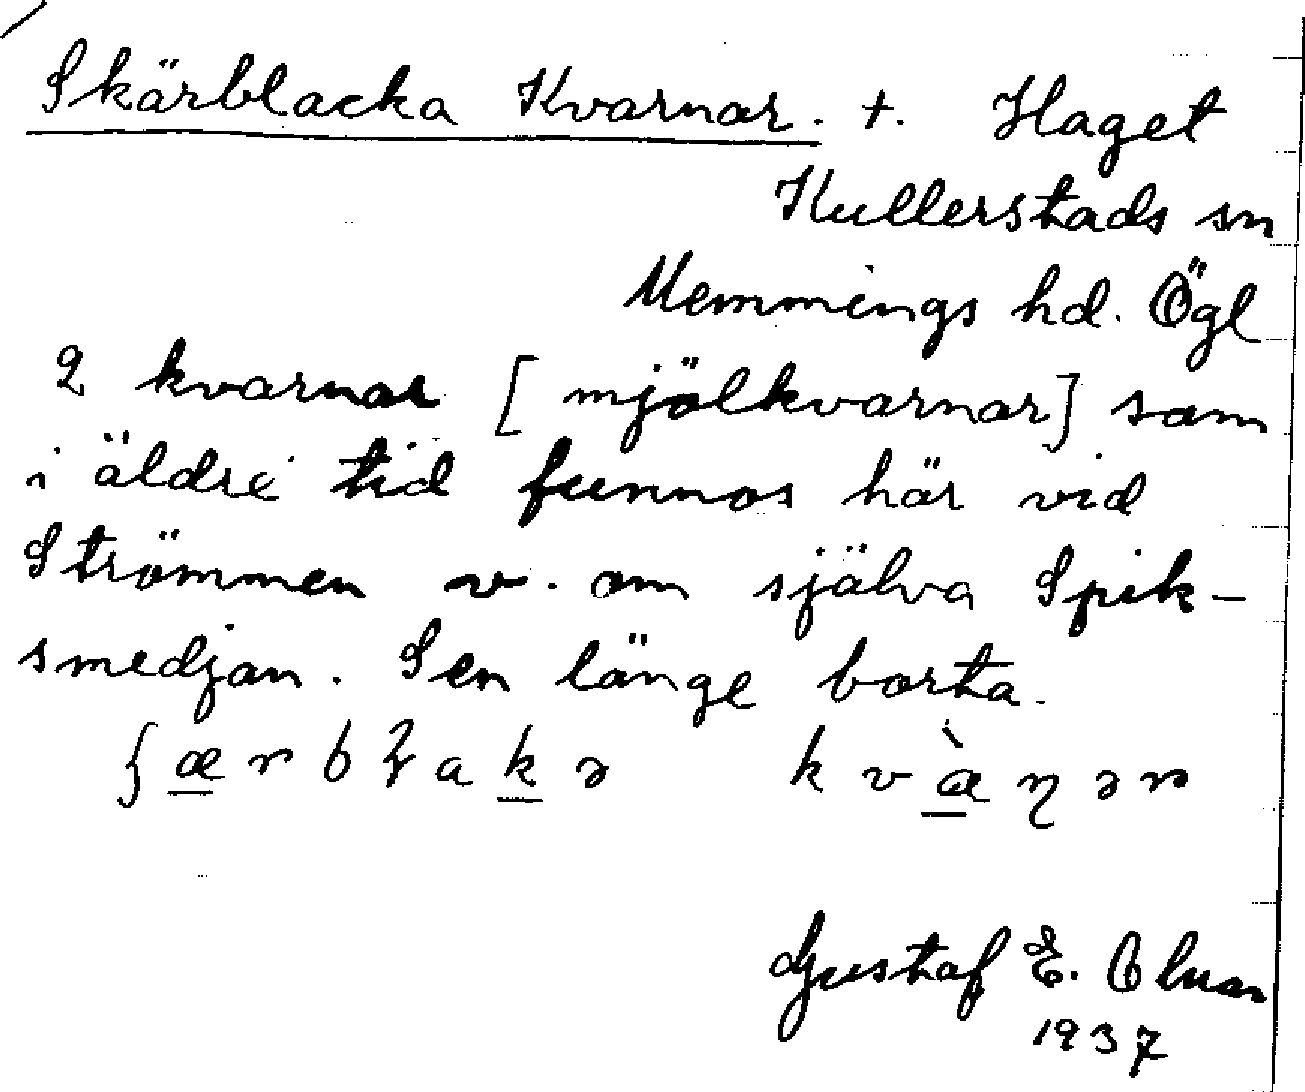 Skärblacka Kvarnar. +. Haget
Kullerstads sn
Memmings hd. Ögl
2 kvarnar [mjölkvarnar] som
i äldre tid funnos här vid
Strömmen v. om själva Spik-
smedjan. Sen länge borta.
ʃærbɽakə kvæ̀ɳər
Gustaf E. Olsson
1937